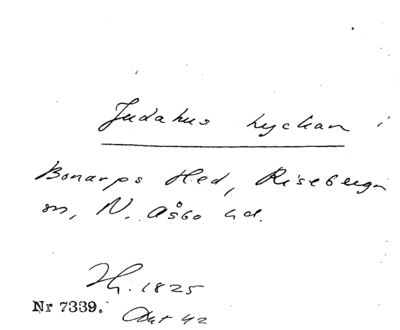 Judahus Lyckan i
Bonarps Hed, Riseberga
sn, N. Åsbo hd.
Th. 1825
Nr 7339.
Akt 42